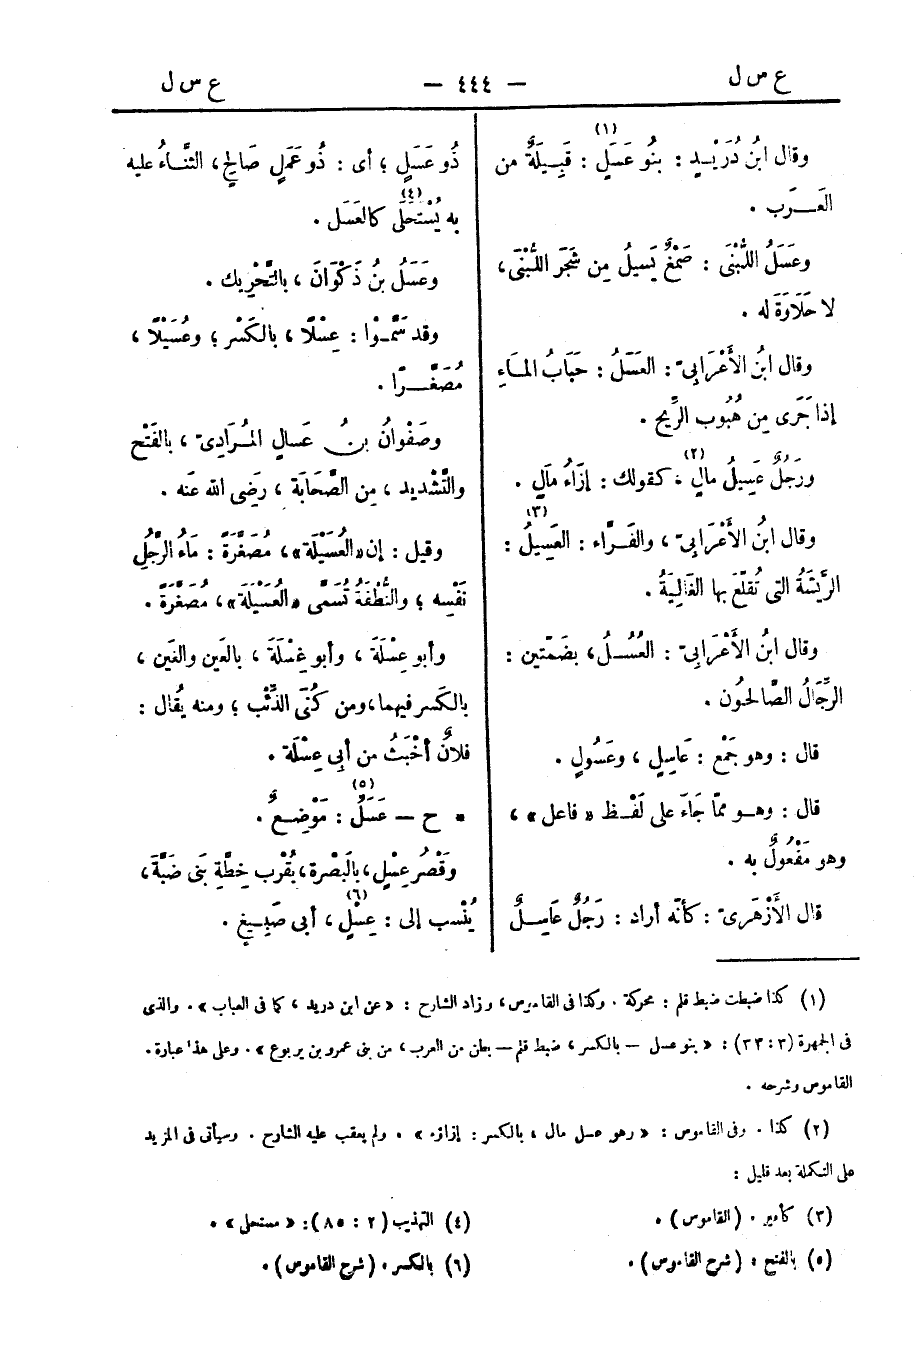 ع س ل
— ٤٤٤ —
ع س ل
وقال ابنُ دُرَيْـدٍ : بنُو عَسَلٍ (١) : قَبِيلَةٌ من
العَـرَب .
وعَسَلُ اللُّبْنَى : صَمْغٌ يَسِيلُ مِن شَجَر اللُّبْنَى ،
لا حَلَاوَةَ له .
وقال ابنُ الأَعْرَابِىّ : العَسَلُ : حَبَابُ المَـاءِ
إذا جَرَى مِن هُبُوب الرِّيح .
ورَجُلٌ عَسِيلُ مالٍ (٢) ، كقولك : إزَاءُ مَالٍ .
وقال ابنُ الأَعْرَابِىّ ، والفَـرَّاء : العَسِيلُ (٣) :
الرِّيشَةُ التى تُقْلَع بها الغَالِيَةُ .
وقال ابنُ الأَعْرَابِىّ : العُسُـلُ ، بضَمَّتين :
الرِّجَالُ الصَّالحُون .
قال : وهو جَمْع : عَاسِلٍ ، وعَسُولٍ .
قال : وهـو ممّا جَاءَ على لَفْـظ « فاعل » ،
وهو مَفْعُولٌ به .
قال الأَزْهَرِىّ : كأنّه أراد : رَجُلٌ عَاسِـلٌ
ذُو عَسَلٍ ؛ أى : ذُو عَمَلٍ صَالحٍ ، الثَّنـاءُ عليه
به يُسْتَحْلَى (٤) كالعَسَل .
وعَسَلُ بنُ ذَكْوَانَ ، بالتَّحْرِيك .
وقد سَمَّـوْا : عِسْلًا ، بالكَسْر ؛ وعُسَيْلًا ،
مُصَغَّـرًا .
وصَفْوانُ بنُ عَسالٍ المُـرَادِىّ ، بالفَتْح
والتَّشْديد ، مِن الصَّحَابَة ، رَضِى الله عَنه .
وقيل : إن «العُسَيْلة» ، مُصَغَّرَةً : مَاءُ الرَّجُلِ
نَفْسِه ؛ والنُّطْفَةُ تُسَمَّى «العُسَيْلَةَ» ، مُصَغَّرَةً .
وأبو عِسْلَةَ ، وأبو غِسْلَةَ ، بالعَين والغَين ،
بالكَسر فيهما ، ومن كُنَى الذِّئْب ؛ ومنه يقُال :
فلانٌ أَخْبَثُ من أبى عِسْلَة .
* ح – عَسَلٌ (٥) : مَوْضِعٌ .
وقَصْر عِسْلٍ ، بالبَصْرة ، بقُرْب خِطَّةِ بَنى ضَبَّةَ ،
يُنْسب إلى : عِسْلٍ (٦) ، أبى صَبِيغٍ .
(١) كذا ضبطت ضبط قلم : محركة . وكذا فى القاموس ، وزاد الشارح : « عن ابن دريد ، كما فى العباب » . والذى
فى الجمهرة (٣ : ٣٣) : « بنو عسل – بالكسر ، ضبط قلم – بطن من العرب ، من بنى عمرو بن يربوع » . وعلى هذا عبارة .
القاموس وشرحه .
(٢) كذا . وفى القاموس : « وهو عسل مال ، بالكسر : إزاؤه » . ولم يعقب عليه الشارح . وسيأتى فى المزيد
على التكملة بعد قليل :
(٣) كأمير . (القاموس) .
(٤) التهذيب (٢ : ٨٥) : « مستحلى » .
(٥) بالفتح : (شرح القاموس) .
(٦) بالكسر . (شرح القاموس) .